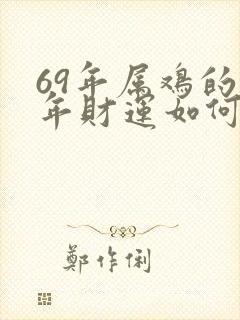 69年属鸡的
年财运如何
鄭作俐